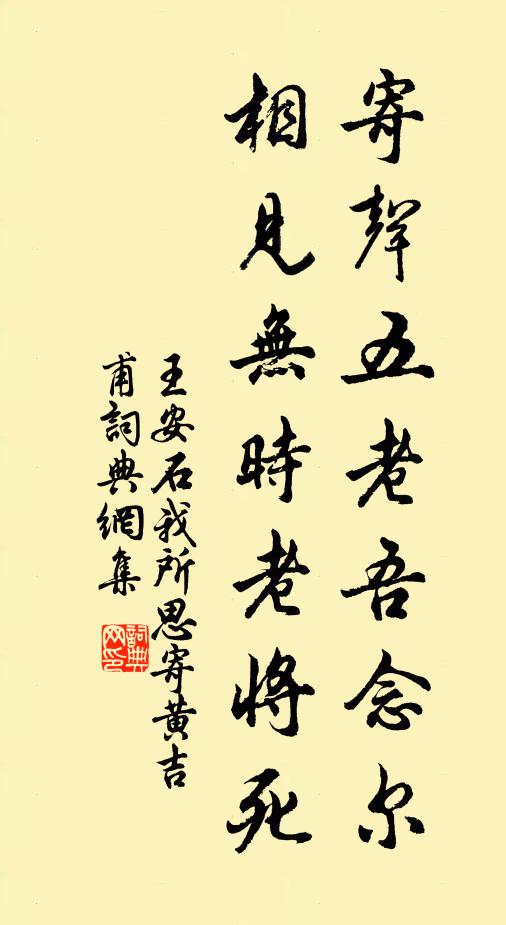 寄聲五老吾念尔
相見無時老將死
王安石我所思寄黄吉
甫詞典網集
詞典
网印